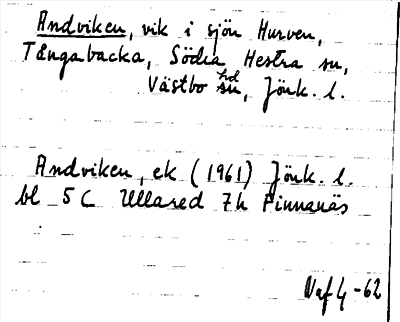 Andviken, vik i sjön Hurven,
Tångabacka, Södra Hestra sn,
Västbo hd, Jönk. l.
Andviken, ek (1961) Jönk. l.
bl 5C Ullared 7h Finnanäs
4-62